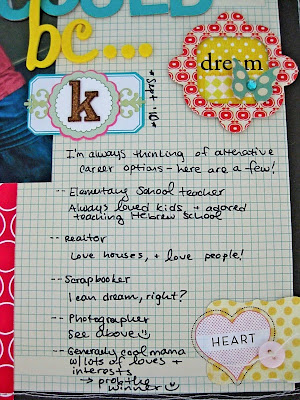 COULD
be...
dream
k
*Sept '10*
I'm always thinking of alternative
career options - here are a few!
-- Elementary School teacher
Always loved kids, + adored
teaching Hebrew School
-- Realtor
Love houses, + love people!
-- Scrapbooker
I can dream, right?
-- Photographer
See above
-- Generally cool mama
w/ lots of loves +
interests
→ prob the
winner
HEART